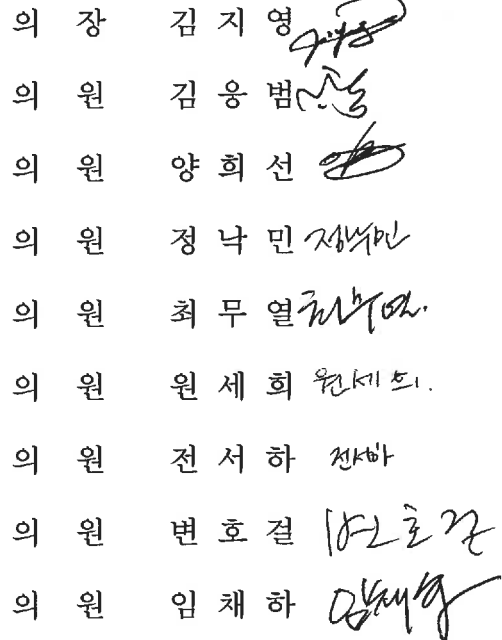 의 장 김 지 영
의 원 김 웅 범
의 원 양 희 선
의 원 정 낙 민 정낙민
의 원 최 무 열 최무열.
의 원 원 세 희 원세희.
의 원 전 서 하 전서하
의 원 변 호 걸 변호걸
의 원 임 채 하 임채하